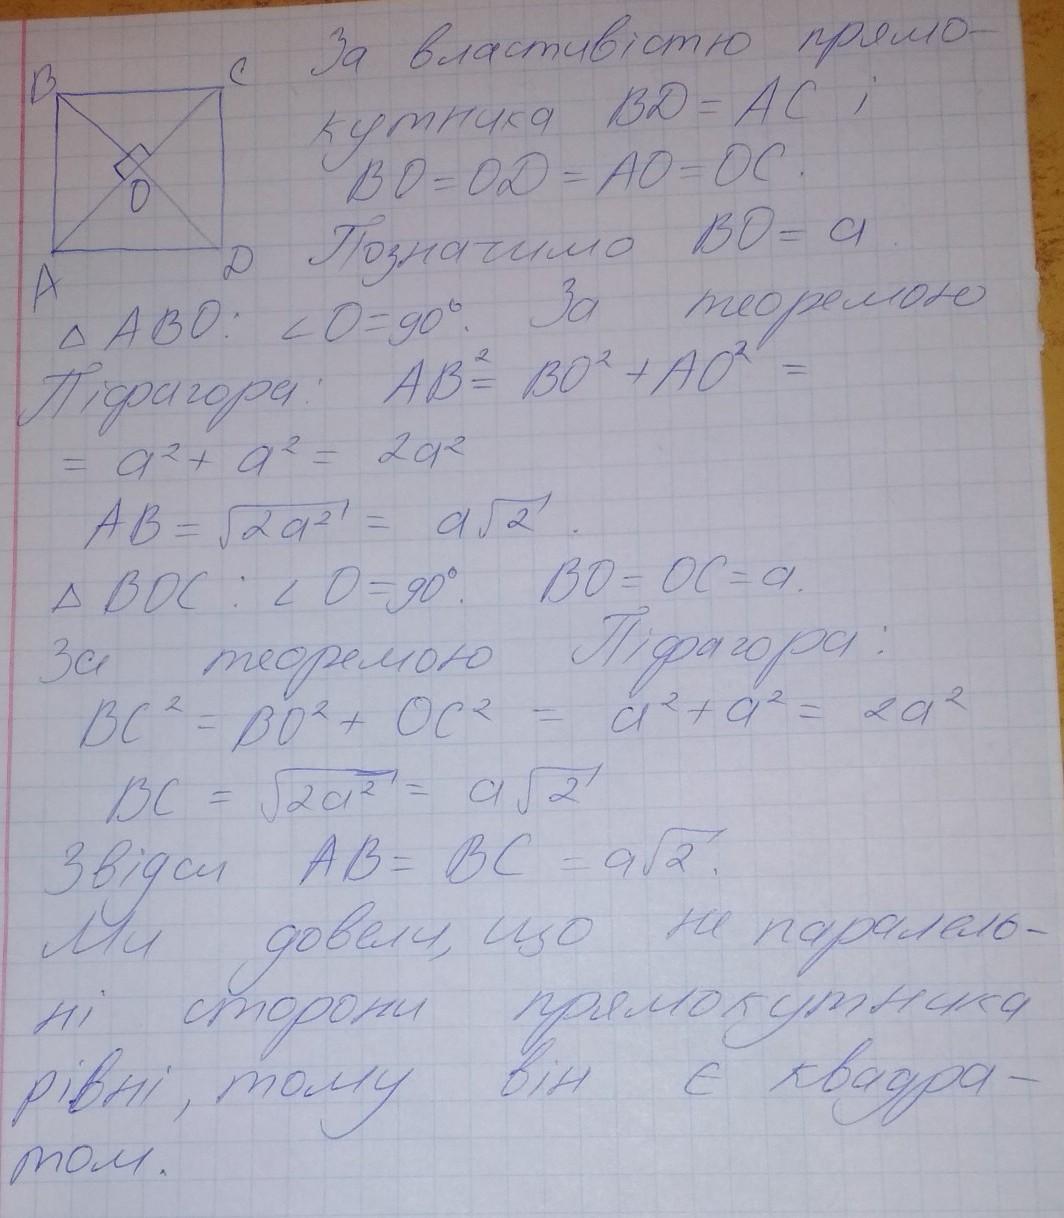 За властивістю прямо-
кутника BD = AC і
BO = OD = AO = OC.
Позначимо BO = a.
B C
O
A D
△ ABO: ∠O = 90°. За теоремою
Піфагора: AB² = BO² + AO² =
= a² + a² = 2a²
AB = √2a² = a√2.
△ BOC: ∠O = 90°. BO = OC = a.
За теоремою Піфагора:
BC² = BO² + OC² = a² + a² = 2a²
BC = √2a² = a√2
Звідси AB = BC = a√2.
Ми довели, що не паралель-
ні сторони прямокутника
рівні, тому він є квадра-
том.